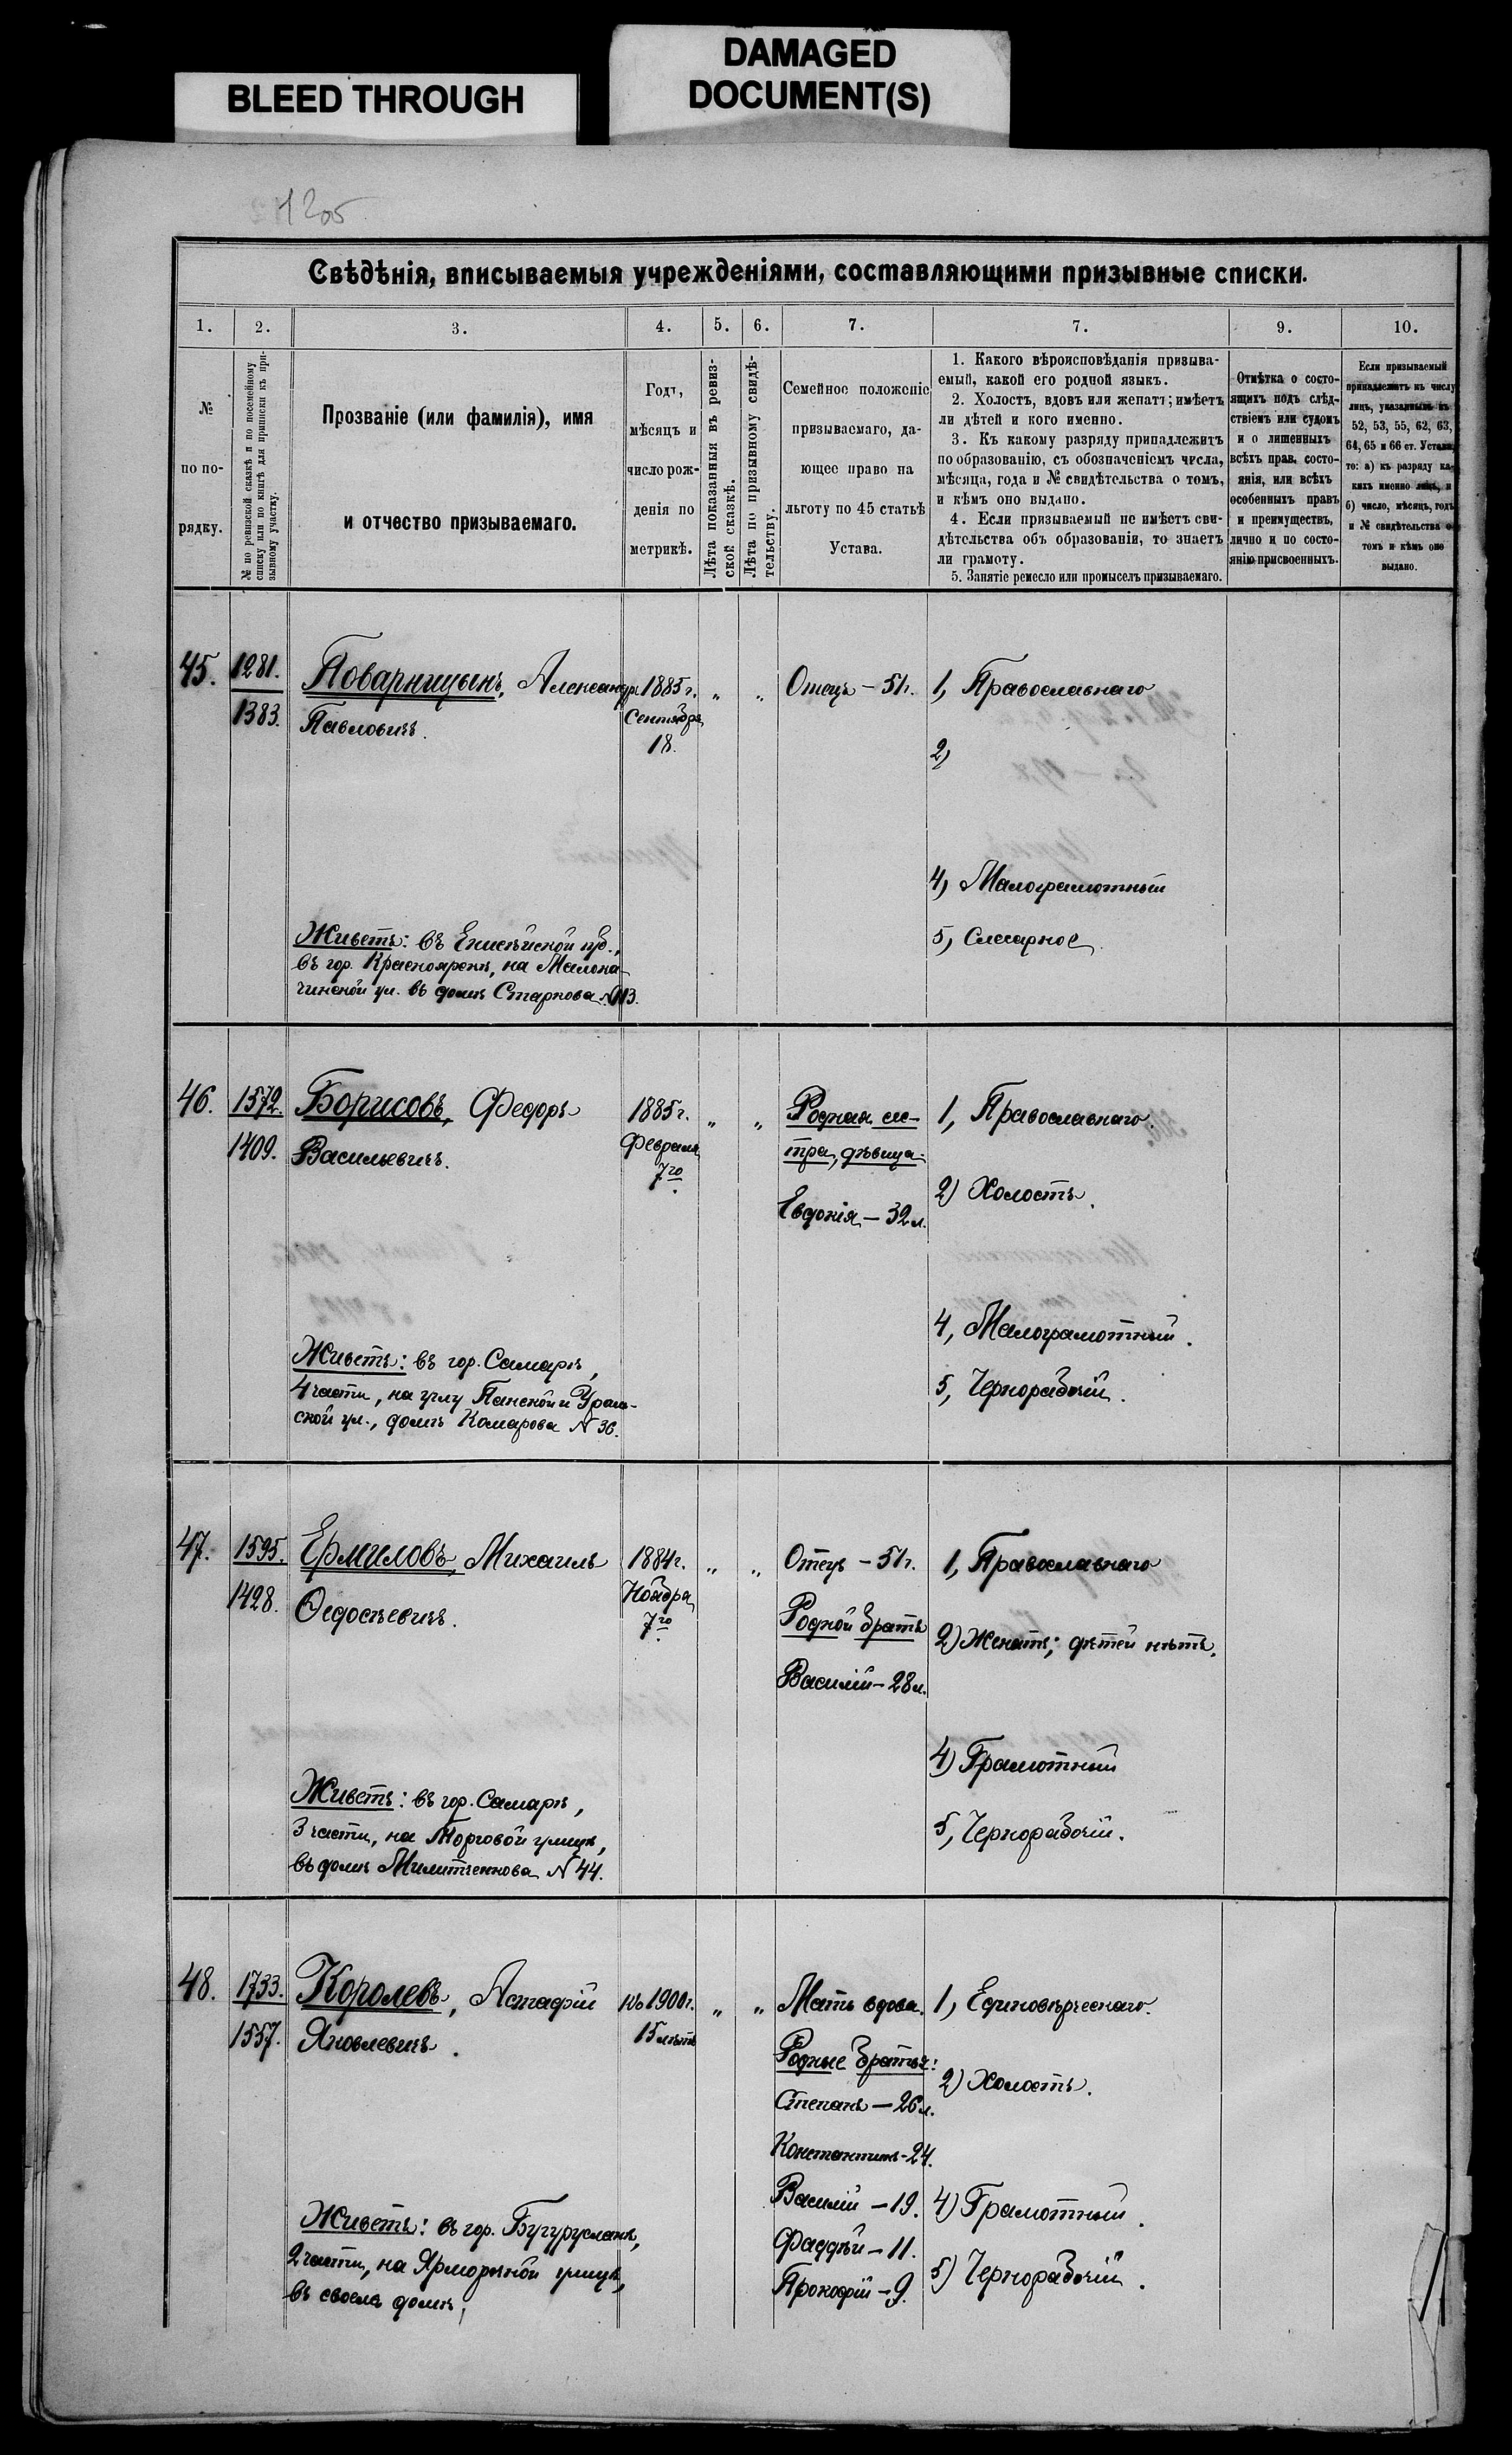 BLEED THROUGH
DAMAGED
DOCUMENT(S)
1205
Свѣдѣнія, вписываемыя учрежденіями, составляющими призывные списки.
1. 2. 3. 4. 5. 6. 7. 7. 9. 10.
№
по по-
рядку.
№ по ревизской сказкѣ и по посемейному
списку или по книгѣ для приписки къ при-
зывному участку.
Прозваніе (или фамилія), имя
и отчество призываемаго.
Годъ,
мѣсяцъ и
число рож-
денія по
метрикѣ.
Лѣта показанныя въ ревиз-
ской сказкѣ.
Лѣта по призывному свидѣ-
тельству.
Семейное положеніе
призываемаго, да-
ющее право на
льготу по 45 статьѣ
Устава.
1. Какого вѣроисповѣданія призыва-
емый, какой его родной языкъ.
2. Холостъ, вдовъ или женатъ; имѣетъ
ли дѣтей и кого именно.
3. Къ какому разряду принадлежитъ
по образованію, съ обозначеніемъ числа,
мѣсяца, года и № свидѣтельства о томъ,
и кѣмъ оно выдано.
4. Если призываемый не имѣетъ сви-
дѣтельства объ образованіи, то знаетъ
ли грамоту.
5. Занятіе ремесло или промыселъ призываемаго.
Отмѣтка о состо-
ящихъ подъ слѣд-
ствіемъ или судомъ
и о лишенныхъ
всѣхъ прав. состо-
янія, или всѣхъ
особенныхъ правъ
и преимуществъ,
лично и по состо-
янію присвоенныхъ.
Если призываемый
принадлежитъ къ числу
лицъ, указанныхъ въ
52, 53, 55, 62, 63,
64, 65 и 66 ст. Устава,
то: а) къ разряду ка-
кихъ именно лицъ, и
б) число, мѣсяцъ, годъ
и № свидѣтельства о
томъ и кѣмъ оно
выдано.
45. 1281. Поварницынъ, Александръ 1885 г. „ „ Отецъ – 51 г. 1, Православнаго
1383. Павловичъ. Сентября
18.
2)
4) Малограмотный
5, Слесарное
Живетъ: въ Енисѣйской губ.,
въ гор. Красноярскѣ, на Малока-
чинской ул. въ домѣ Старкова №113.
46. 1572. Борисовъ, Федоръ 1885 г. „ „ Родная сес- 1, Православнаго.
1409. Васильевичъ. Февраля тра, дѣвица
7го
Евдокія – 32 л. 2) Холостъ.
4, Малограмотный.
5, Чернорабочій.
Живетъ: въ гор. Самарѣ,
4 части, на углу Панской и Ураль-
ской ул., домъ Комарова № 36.
47. 1595. Ермиловъ, Михаилъ 1884 г. „ „ Отецъ – 51 г. 1, Православнаго
1428. Ѳедосѣевичъ. Ноября
7го
Родной братъ 2) Женатъ; дѣтей нѣтъ.
Василій – 28 л.
4) Грамотный
5, Чернорабочій.
Живетъ: въ гор. Самарѣ,
3 части, на Торговой улицѣ,
въ домѣ № 44.
48. 1733. Королевъ, Астафій къ 1900 г. „ „ Мать вдова. 1, Единовѣрческаго.
1557. Яковлевичъ. 15 лѣтъ
Родные братья:
2) Холостъ.
Степанъ – 26 л.
Константинъ – 24.
Василій – 19. 4) Грамотный.
Фаддѣй – 11.
5) Чернорабочій.
Прокофій – 9.
Живетъ: въ гор. Бугурусланѣ,
2 части, на Ярморочной улицѣ,
въ своемъ домѣ,